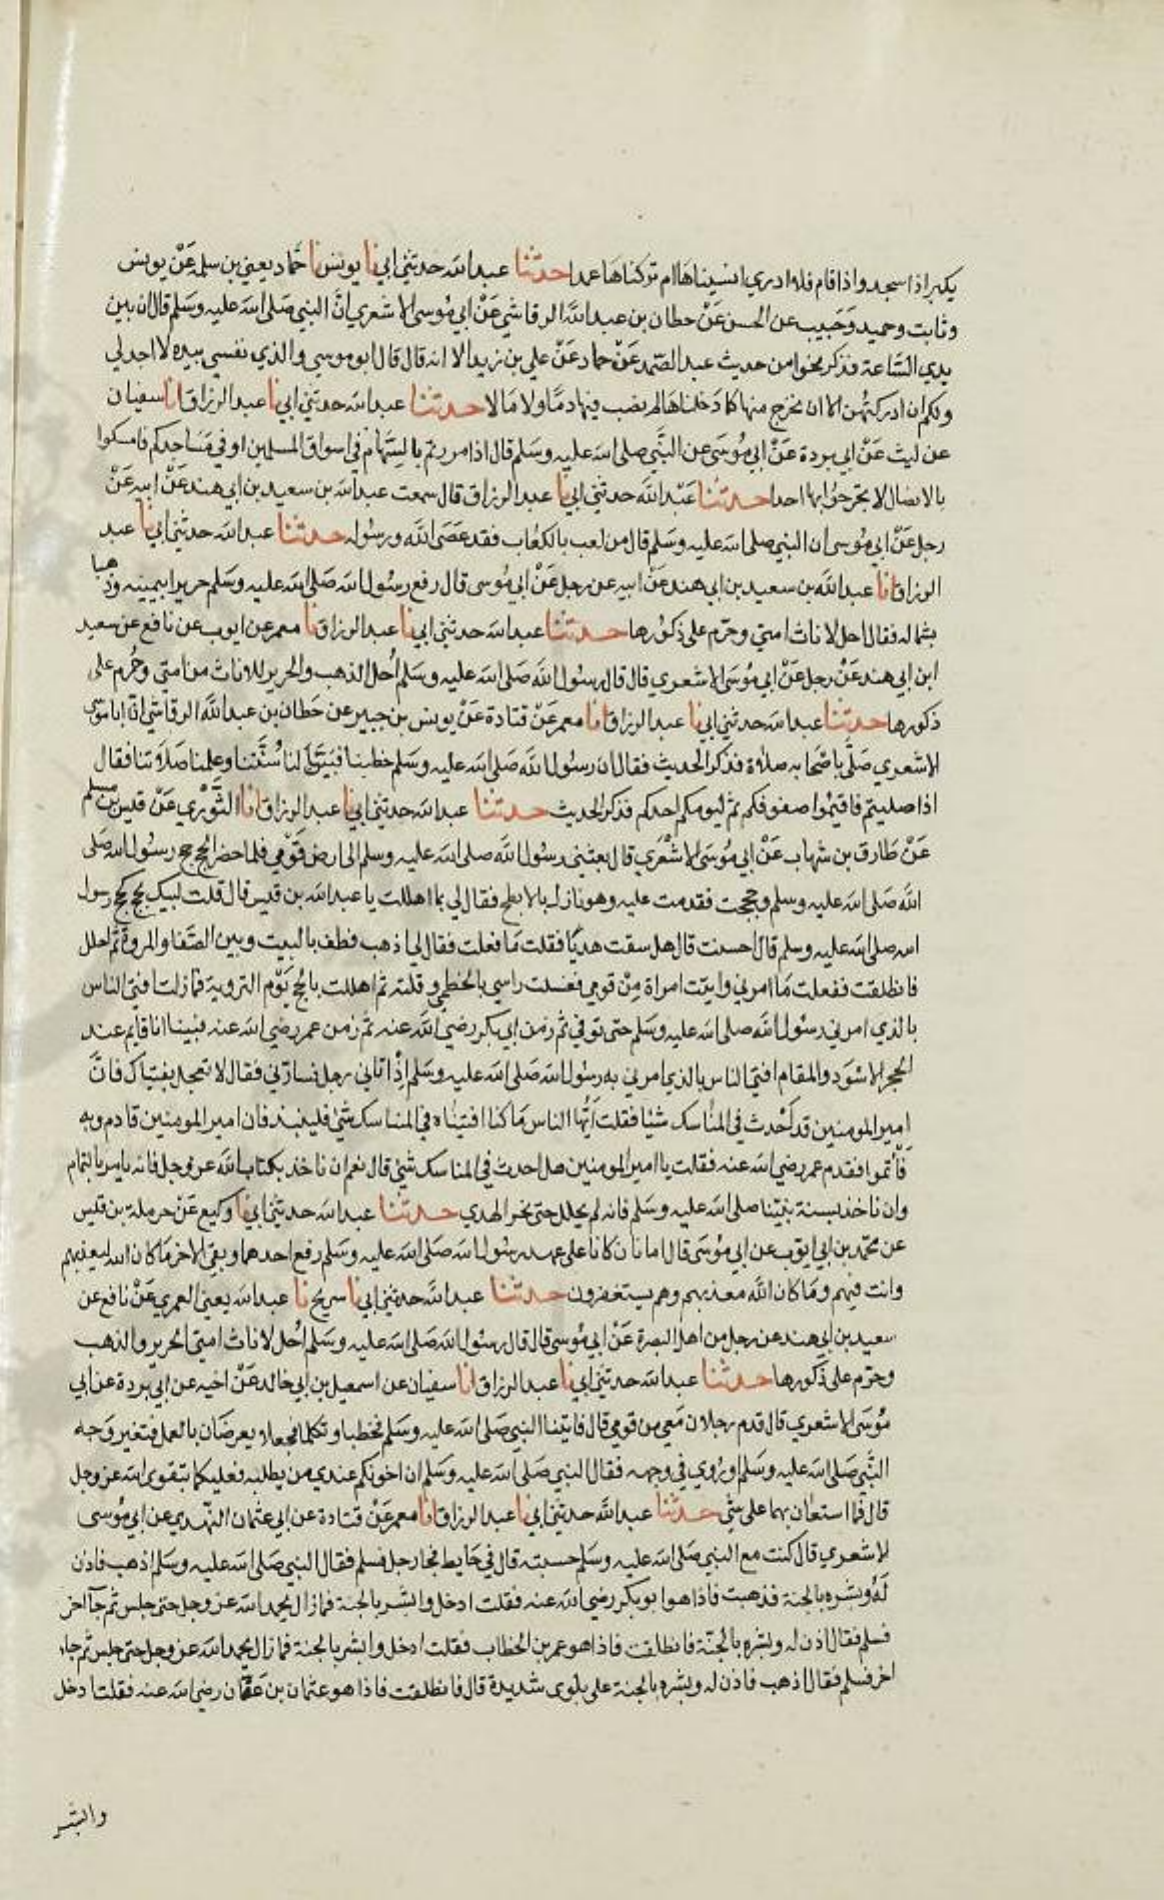 يكبر اذا سجد واذا قام فلا ادري انسيناها ام تركناها عمدا حدثنا عبد الله حدثني ابي نا يونس نا حماد يعني بن سلمة عن يونس
وثابت وحميد وحبيب عن الحسن عن حطان بن عبد الله الرقاشي عن ابي موسى الاشعري ان النبي صلى الله عليه وسلم قال ان بين
يدي الساعة فذكر نحوا من حديث عبد الصمد عن حماد عن علي بن زيد الا انه قال قال ابو موسى والذي نفسي بيده لا اجد لي
ولكم ان ادركتهن الا ان نخرج منها كما دخلناها لم نصب فيها دما ولا مالا حدثنا عبد الله حدثني ابي نا عبد الرزاق انا سفيان
عن ليث عن ابي بردة عن ابي موسى عن النبي صلى الله عليه وسلم قال اذا مررتم بالسهام في اسواق المسلمين او في مساجدكم فامسكوا
بالانصال لا تجرحوا بها احدا حدثنا عبد الله حدثني ابي نا عبد الرزاق قال سمعت عبد الله بن سعيد بن ابي هند عن ابيه عن
رجل عن ابي موسى ان النبي صلى الله عليه وسلم قال من لعب بالكعاب فقد عصى الله ورسوله حدثنا عبد الله حدثني ابي نا عبد
الرزاق انا عبد الله بن سعيد بن ابي هند عن ابيه عن رجل عن ابي موسى قال رفع رسول الله صلى الله عليه وسلم حريرا بيمينه وذهبا
بشماله فقال احل لاناث امتي وحرم على ذكورها حدثنا عبد الله حدثني ابي نا عبد الرزاق نا معمر عن ايوب عن نافع عن سعيد
ابن ابي هند عن رجل عن ابي موسى الاشعري قال قال رسول الله صلى الله عليه وسلم احل الذهب والحرير للاناث من امتي وحرم على
ذكورها حدثنا عبد الله حدثني ابي نا عبد الرزاق انا معمر عن قتادة عن يونس بن جبير عن حطان بن عبد الله الرقاشي ان ابا موسى
الاشعري صلى باصحابه صلاة فذكر الحديث فقال ان رسول الله صلى الله عليه وسلم خطبنا فبين لنا سنتنا وعلمنا صلاتنا فقال
اذا صليتم فاقيموا صفوفكم ثم ليؤمكم احدكم فذكر الحديث حدثنا عبد الله حدثني ابي نا عبد الرزاق انا الثوري عن قيس بن مسلم
عن طارق بن شهاب عن ابي موسى الاشعري قال بعثني رسول الله صلى الله عليه وسلم الى ارض قومي فلما حضر الحج حج رسول الله صلى
الله صلى الله عليه وسلم وحججت فقدمت عليه وهو نازل بالابطح فقال لي بما اهللت يا عبد الله بن قيس قال قلت لبيك بحج كحج رسول
الله صلى الله عليه وسلم قال احسنت قال هل سقت هديا فقلت ما فعلت فقال لي اذهب فطف بالبيت وبين الصفا والمروة ثم احلل
فانطلقت ففعلت ما امرني واتيت امراة من قومي فغسلت راسي بالخطمي وفلته ثم اهللت بالحج يوم التروية فما زلت افتي الناس
بالذي امرني رسول الله صلى الله عليه وسلم حتى توفي ثم زمن ابي بكر رضي الله عنه ثم زمن عمر رضي الله عنه فبينا انا قايم عند
الحجر الاسود والمقام افتي الناس بالذي امرني به رسول الله صلى الله عليه وسلم اذ اتاني رجل فسارني فقال لا تعجل بفتياك فان
امير المومنين قد احدث في المناسك شيئا فقلت ايها الناس من كنا افتيناه في المناسك شي فليتئد فان امير المومنين قادم وبه
فاتموا فقدم عمر رضي الله عنه فقلت يا امير المومنين هل احدث في المناسك شي قال نعم ان ناخذ بكتاب الله عز وجل فانه يامر بالتمام
وان ناخذ بسنة نبينا صلى الله عليه وسلم فانه لم يحلل حتى نحر الهدي حدثنا عبد الله حدثني ابي نا وكيع عن حرملة بن قيس
عن محمد بن ابي ايوب عن ابي موسى قال امانان كانا على عهد رسول الله صلى الله عليه وسلم رفع احدهما وبقي الاخر ما كان الله ليعذبهم
وانت فيهم وما كان الله معذبهم وهم يستغفرون حدثنا عبد الله حدثني ابي نا سريج نا عبد الله يعني العمري عن نافع عن
سعيد بن ابي هند عن رجل من اهل البصرة عن ابي موسى قال قال رسول الله صلى الله عليه وسلم احل لاناث امتي الحرير والذهب
وحرم على ذكورها حدثنا عبد الله حدثني ابي نا عبد الرزاق انا سفيان عن اسمعيل بن ابي خالد عن اخيه عن ابي بردة عن ابي
موسى الاشعري قال قدم رجلان معي من قومي قال فاتينا النبي صلى الله عليه وسلم فخطبا وتكلما فجعلا يعرضان بالعمل فتغير وجه
النبي صلى الله عليه وسلم وروي في وجهه فقال النبي صلى الله عليه وسلم ان اخونكم عندي من يطلبه فعليكما بتقوى الله عز وجل
قال فما استعان بهما على شي حدثنا عبد الله حدثني ابي نا عبد الرزاق انا معمر عن قتادة عن ابي عثمان النهدي عن ابي موسى
الاشعري قال كنت مع النبي صلى الله عليه وسلم حسبته قال في حايط فجا رجل فسلم فقال النبي صلى الله عليه وسلم اذهب فاذن
له وبشره بالجنة فذهبت فاذا هو ابو بكر رضي الله عنه فقلت ادخل وابشر بالجنة فما زال يحمد الله عز وجل حتى جلس ثم جآ اخر
فسلم فقال اذن له وبشره بالجنة فانطلقت فاذا هو عمر بن الخطاب فقلت ادخل وابشر بالجنة فما زال يحمد الله عز وجل حتى جلس ثم جاء
اخر فسلم فقال اذهب فاذن له وبشره بالجنة على بلوى شديدة قال فانطلقت فاذا هو عثمان بن عفان رضي الله عنه فقلت ادخل
وابشر